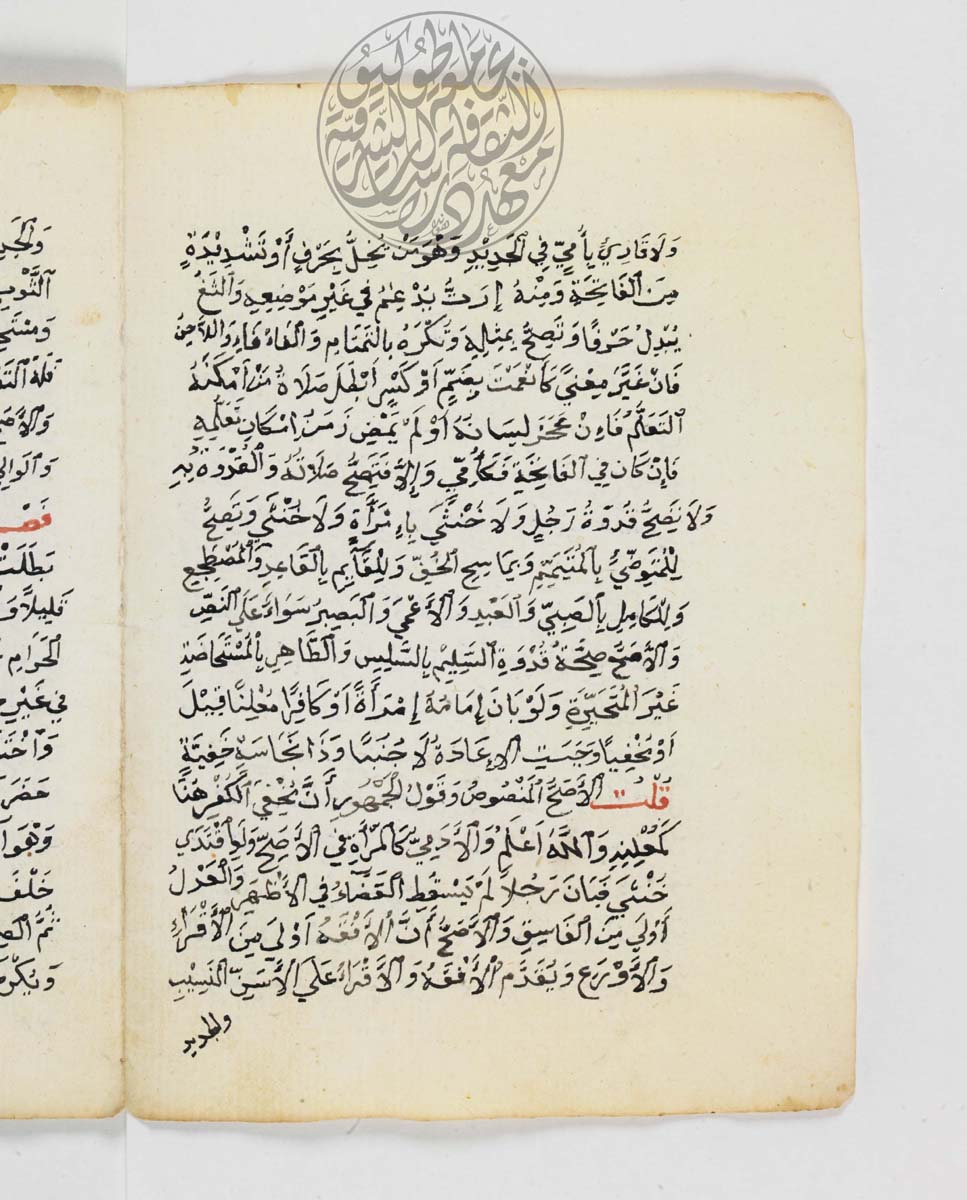 معهد دراسات الثقافة الشرقية
بجامعة طوكيو
وَلَا قَارِئٍ بِأُمِّيٍّ فِي الْجَدِيْدِ وَهْوَ مَنْ يُخِلُّ بِحَرْفٍ أَوْ تَشْدِيْدَةٍ
مِنَ الْفَاتِحَةِ وَمِنْهُ اِرَتُّ يُدْغِمُ فِي غَيْرِ مَوْضِعِهِ وَالْثَغُ
يُبْدِلُ حَرْفًا وَتَصِحُّ بِمِثْلِهِ وَتُكْرَهُ بِالتَّمْتَامِ وَالْفَاءْفَاءِ وَاللَّاحِنُ
فَاِنْ غَيَّرَ مِعْنيً كَأَنْعَمْتَ بِضَمٍّ أَوْ كَسْرٍ أَبْطَلَ صَلَاةَ مَنْ أَمْكَنَهُ
التَّعَلُّمُ فَاءِنْ عَجَزَ لِسَانَهُ اَوْ لَمْ يَمْضِ زَمَنُ اِمْكَانِ تَعَلُّمِهِ
فَاِنْ كَانَ فِي الْفَاتِحَةِ فَكَأُمِّيٍّ وَإِلَّا فَتَصِحُّ صَلَاتُهُ وَالْقُدْوَةُ بِهِ
وَلَا يَصِحُّ قُدْوَةُ رَجُلٍ وَلَا خُنْثَي بِاءِمْرَأَةٍ وَلَا خُنْثَي وَتَصِحُّ
لِلْمُتَوَضِّئُ بِالْمُتَيَمِّمِ وَبِمَاسِحِ الْخُفِّ وَلِلْقَآيِٕمِ بِالْقَاعِدِ وَالْمُضْطَجِعِ
وَلِلْكَامِلِ بِالصَّبِيِّ وَالْعَبْدِ وَالْأَعْمَي وَالْبَصِيرُ سَوَاءٌ عَلَي النَّصِّ
وَالْأَصَحُّ صِحَّةُ قُدْوَةِ السَّلِيْمِ بِالسَّلِسِ وَالطَّاهِرِ بِالْمُسْتَحَاضَةِ
غَيْرَ الْمُتَحَيِّرَةِ وَلَوْ بَانَ إِمَامَهُ إِمْرَأَةً اَوْ كَافِرًا مُعْلِنًا قِيْلَ
اَوْ مُخْفِياً وَجَبَتِ الْاِعَادَةُ لَا جُنُبًا وَذَا نَجَاسَةٍ خَفِيَّةٍ
قُلْتُ الْأَصَحُّ الْمَنْصُوصُ وَقَوْلُ الْجُمْهُورِ أَنَّ مُخْفِيَ الْكُفْرِ هُنَا
كَمُعْلِنِهِ وَاللَّهُ اَعْلَمُ وَالْأُمِّيُّ كَالْمَرْأَةِ فِي الْأَصَحِّ وَلَوِ اقْتَدَي
خُنْثَيَ فَبَانَ رَجُلاً لَمْ يَسْقُطِ الْقَضَاءُ فِي الْأَظْهَرِ وَالْعَدْلُ
أَوْلَي مِنَ الْفَاسِقِ وَالْأَصَحُّ أَنَّ الْأَفْقَهَ اَوْلَيَ مِنَ الْأَقْرَاءِ
وَالْأَوْرَعِ وَيُقَدَّمُ الْأَفْقَهُ وَالْأَقْرَاءُ عَلَي الْأَسَنِّ النَّسِيْبِ
والجديد
وَالْجَدِ
الثَّوْبِ
وَمُسْتَحِ
فَلَهُ التَّقْ
وَالْأَصَ
وَالْوَالِي
فَصْ
بَطَلَتْ
قَلِيلاً وَ
الْحَرَامِ
فِي غَيْرِ
وَاخْتَ
حَضَرَ
وَهْوَ ا
خَلْفَ
ثُمَّ الصِ
وَيُكْرَ